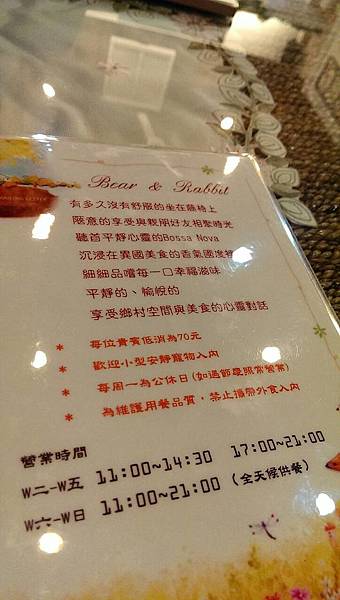 Bear & Rabbit
有多久沒有舒服的坐在藤椅上
隨意的享受與親朋好友相聚時光
聽首平靜心靈的Bossa Nova
沉浸在異國美食的香氣國度裡
細細品嚐每一口幸福滋味
平靜的、愉悅的
享受鄉村空間與美食的心靈對話
* 每位貴賓低消為70元
* 歡迎小型安靜寵物入內
* 每周一為公休日(如遇節慶照常營業)
* 為維護用餐品質，禁止攜帶外食入內
營業時間
W二-W五 11:00~14:30 17:00~21:00
W六-W日 11:00~21:00 (全天候供餐)